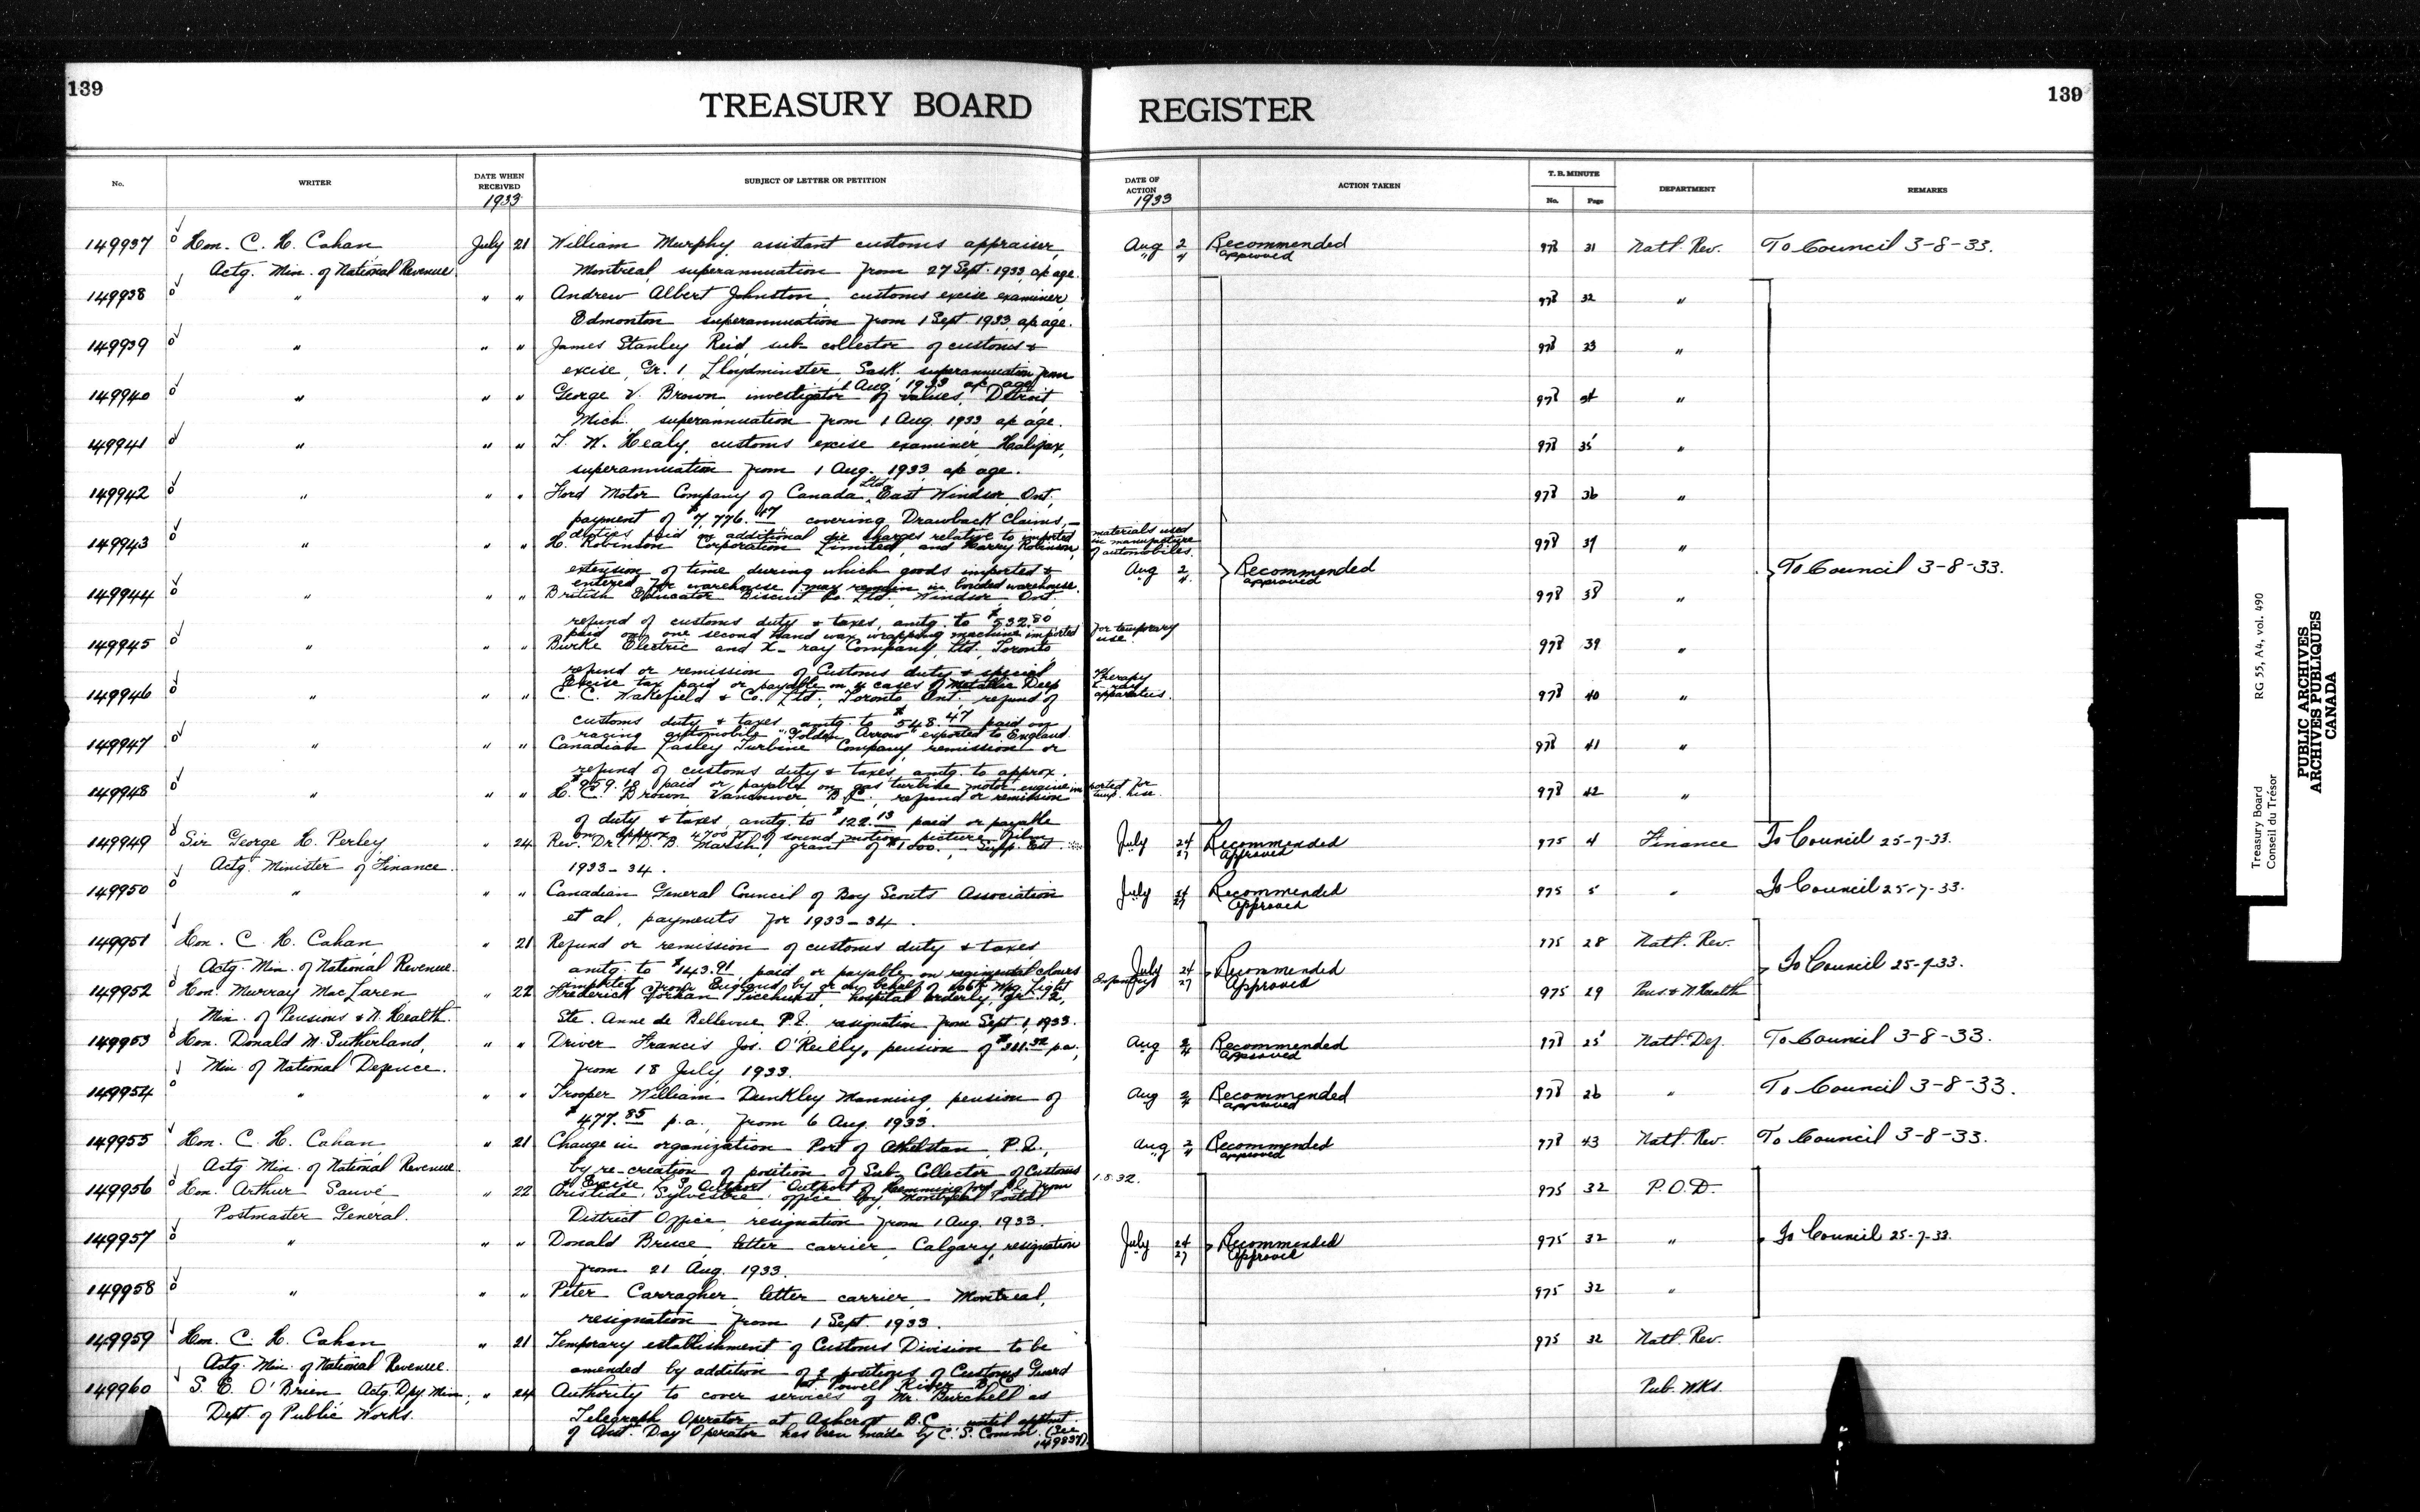 139
TREASURY BOARD REGISTER
139
No. WRITER DATE WHEN RECEIVED 1933 SUBJECT OF LETTER OR PETITION DATE OF ACTION 1933 ACTION TAKEN T. B. MINUTE No. Page DEPARTMENT REMARKS
149937 Hon. C. H. Cahan July 21 William Murphy, assistant customs appraiser, Aug 2 Recommended 978 31 Natl. Rev. To Council 3-8-33.
Actg. Min. of National Revenue Montreal, superannuation from 27 Sept. 1933, a/c age. " 4 approved
149938 " " " Andrew Albert Johnston, customs excise examiner, 978 32 "
Edmonton superannuation from 1 Sept. 1933 a/c age.
149939 " " " James Stanley Reid, sub-collector of customs & 978 33 "
excise, Gr. 1, Lloydminster, Sask. superannuation from
1 Aug. 1933 a/c age
149940 " " " George V. Brown, investigator of values, Detroit, 978 34 "
Mich. superannuation from 1 Aug. 1933 a/c age.
149941 " " " T. W. Healy, customs excise examiner, Halifax, 978 35 "
superannuation from 1 Aug. 1933 a/c age.
149942 " " " Ford Motor Company of Canada, Ltd, East Windsor, Ont. 978 36 "
payment of $7,776.47 covering Drawback Claims,-
duties paid on additional die charges relative to imported materials used in manufacture of automobiles.
149943 " " " H. Robinson Corporation Limited, and Harry Robinson, 978 37 "
extension of time during which goods imported & Aug 2 Recommended To Council 3-8-33.
entered for warehouse may remain in bonded warehouse. " 4 approved
149944 " " " British Educator Biscuit Co. Ltd., Windsor Ont. 978 38 "
refund of customs duty & taxes, amtg. to $532.80
paid on one second hand wax wrapping machine imported for temporary use.
149945 " " " Burke Electric and X-ray Company, Ltd., Toronto, 978 39 "
refund or remission of Customs duty & special
Excise tax paid or payable on 4 cases of Metallic Deep Therapy X-ray apparatus.
149946 " " " C. C. Wakefield & Co. Ltd., Toronto Ont. refund of 978 40 "
customs duty & taxes amtg. to $548.47 paid on
racing automobile "Golden Arrow" exported to England.
149947 " " " Canadian Lasley Turbine Company, remission or 978 41 "
refund of customs duty & taxes, amtg. to approx.
$959.18 paid or payable on gas turbine motor engine imported for temp. use.
149948 " " " H. C. Brown Vancouver B.C., refund or remission 978 42 "
of duty & taxes, amtg. to $122.13 paid or payable
on approx 4700 ft of sound motion picture film
149949 Sir George H. Perley, " 24 Rev. Dr. D. B. Marsh, grant of $1000.- Supp. Est. July 24 Recommended 975 4 Finance To Council 25-7-33.
Actg. Minister of Finance. 1933-34. 27 Approved
149950 " " " Canadian General Council of Boy Scouts Association July 24 Recommended 975 5 " To Council 25-7-33.
et al, payments for 1933-34. 27 Approved
149951 Hon. C. H. Cahan, " 21 Refund or remission of customs duty & taxes 975 28 Natl. Rev.
Actg. Min. of National Revenue. amtg. to $143.91 paid or payable on regimental colours July 24 Recommended To Council 25-7-33.
imported from England by or on behalf of 106th Wpg. Light Infantry 27 Approved
149952 Hon. Murray MacLaren, " 22 Frederick Ticehurst, hospital orderly, gr. 2, 975 29 Pens. & N. Health
Min. of Pensions & N. Health. Ste. Anne de Bellevue, P.Q. resignation from Sept. 1, 1933.
149953 Hon. Donald M. Sutherland, " " Driver Francis Jos. O'Reilly, pension of p.a., Aug 2 Recommended 978 25 Natl. Def. To Council 3-8-33.
Min. of National Defence. from 18 July, 1933. 4 approved
149954 " " " Trooper William Dunkley Manning, pension of Aug 2 Recommended 978 26 " To Council 3-8-33.
$477.85 p.a., from 6 Aug. 1933. 4 approved
149955 Hon. C. H. Cahan, " 21 Change in organization Port of Athelstan, P.Q., Aug 2 Recommended 978 43 Natl. Rev. To Council 3-8-33.
Actg. Min. of National Revenue. by re-creation of position of Sub-Collector of Customs " 4 approved
& Excise Outport of Hemmingford P.Q. from 1.8.32.
149956 Hon. Arthur Sauvé " 22 Aristide Sylvestre, office boy, Montreal Postal 975 32 P.O.D.
Postmaster General. District Office, resignation from 1 Aug. 1933.
149957 " " " Donald Bruce, letter carrier, Calgary, resignation July 24 Recommended 975 32 " To Council 25-7-33.
from 21 Aug. 1933. 27 Approved
149958 " " " Peter Carragher, letter carrier, Montreal, 975 32 "
resignation from 1 Sept. 1933.
149959 Hon. C. H. Cahan " 21 Temporary establishment of Customs Division to be 975 32 Natl. Rev.
Actg. Min. of National Revenue. amended by addition of 2 positions of Customs Guard
at Powell River B.C.
149960 S. E. O'Brien Actg. Dpy. Min., " 24 Authority to cover services of Mr. Burchell as Pub. Wks.
Dept. of Public Works. Telegraph Operator at Ashcroft B.C. until apptmt.
of Asst. Day Operator has been made by C. S. Comm. (See 149837).
Treasury Board RG 55, A4, vol. 490
Conseil du Trésor
PUBLIC ARCHIVES
ARCHIVES PUBLIQUES
CANADA